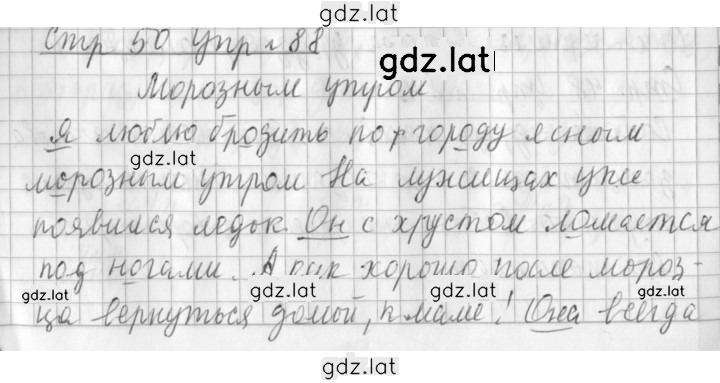 gdz.lat
Стр 50 упр. 88
gdz.lat
Морозным утром
gdz.lat
Я люблю бродить по городу ясным
gdz.lat
морозным утром На лужицах уже
появился ледок. Он с хрустом ломается
под ногами. А как хорошо после мороз-
gdz.lat gdz.lat gdz.lat
ца вернуться домой, к маме! Она всегда
gdz.lat